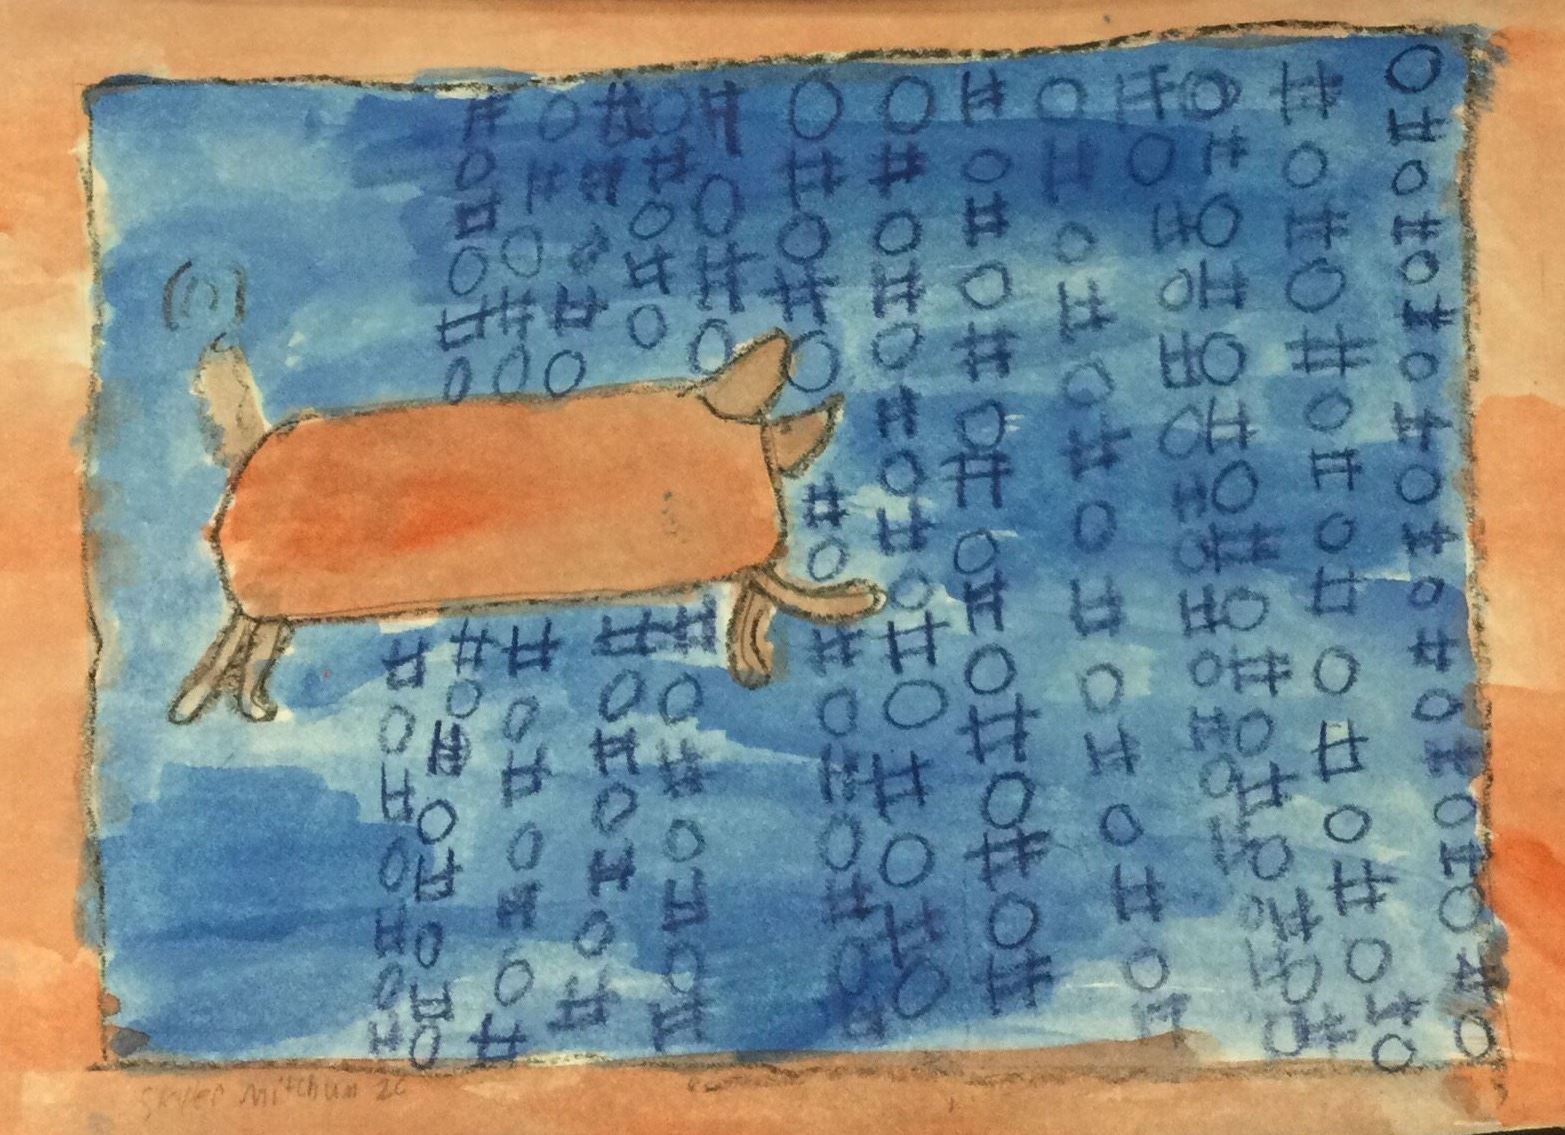 Skyler Mitchum 2C